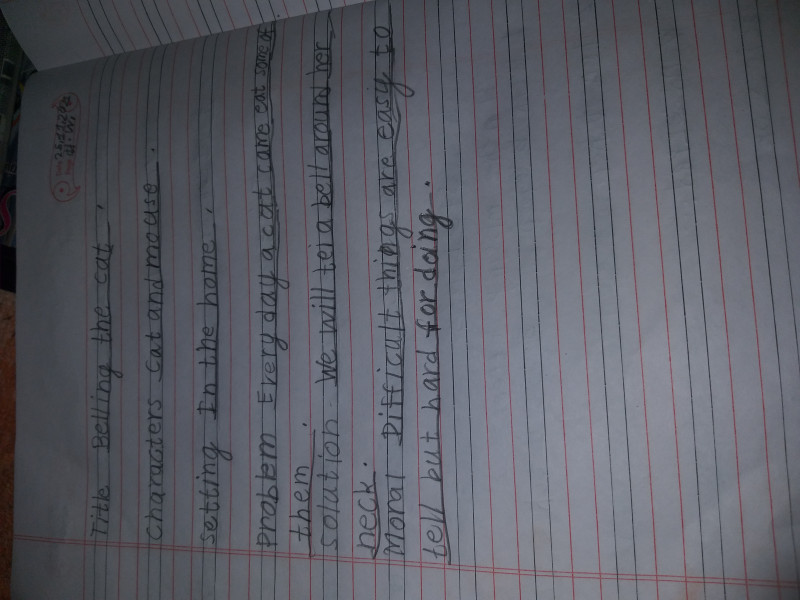 Title Belling the cat.
Characters cat and mouse.
setting In the home.
Problem Every day a cat came eat some of
them.
solution. We will tei a bell around her
neck.
Moral Difficult things are easy to
tell but hard for doing.